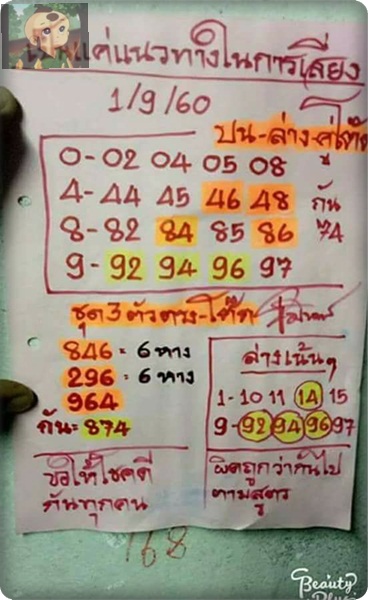 แค่แนวทางในการเสี่ยง
1/9/60
บน-ล่าง-คู่โต๊ด
0-02 04 05 08
4-44 45 46 48 กัน
8-82 84 85 86 74
9-92 94 96 97
ชุด 3 ตัวตรง-โต๊ด
846 = 6 หาง
296 = 6 หาง
964
กัน= 874
ล่างเน้นๆ
1-10 11 14 15
9-92 94 96 97
ขอให้โชคดี
กันทุกคน
ผิดถูกว่ากันไป
ตามสูตร
168
Beauty
Plus